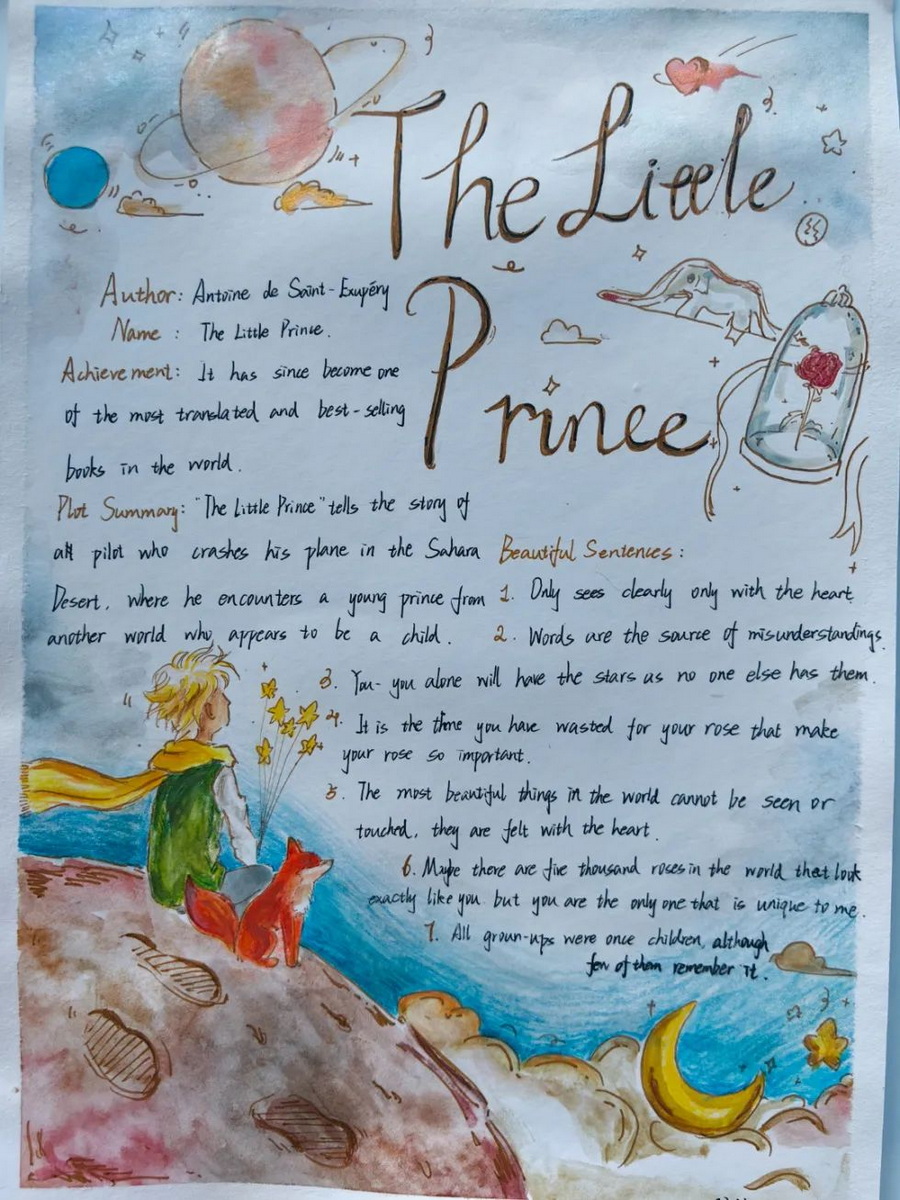 The Little
Prince
Author: Antoine de Saint-Exupéry
Name : The Little Prince.
Achievement: It has since become one
of the most translated and best-selling
books in the world.
Plot Summary: "The Little Prince" tells the story of
a pilot who crashes his plane in the Sahara
Desert, where he encounters a young prince from
another world who appears to be a child.
Beautiful Sentences:
1. Only sees clearly only with the heart.
2. Words are the source of misunderstandings.
3. You- you alone will have the stars as no one else has them.
4. It is the time you have wasted for your rose that make
your rose so important.
5. The most beautiful things in the world cannot be seen or
touched, they are felt with the heart.
6. Maybe there are five thousand roses in the world that look
exactly like you but you are the only one that is unique to me.
7. All grown-ups were once children, although
few of them remember it.